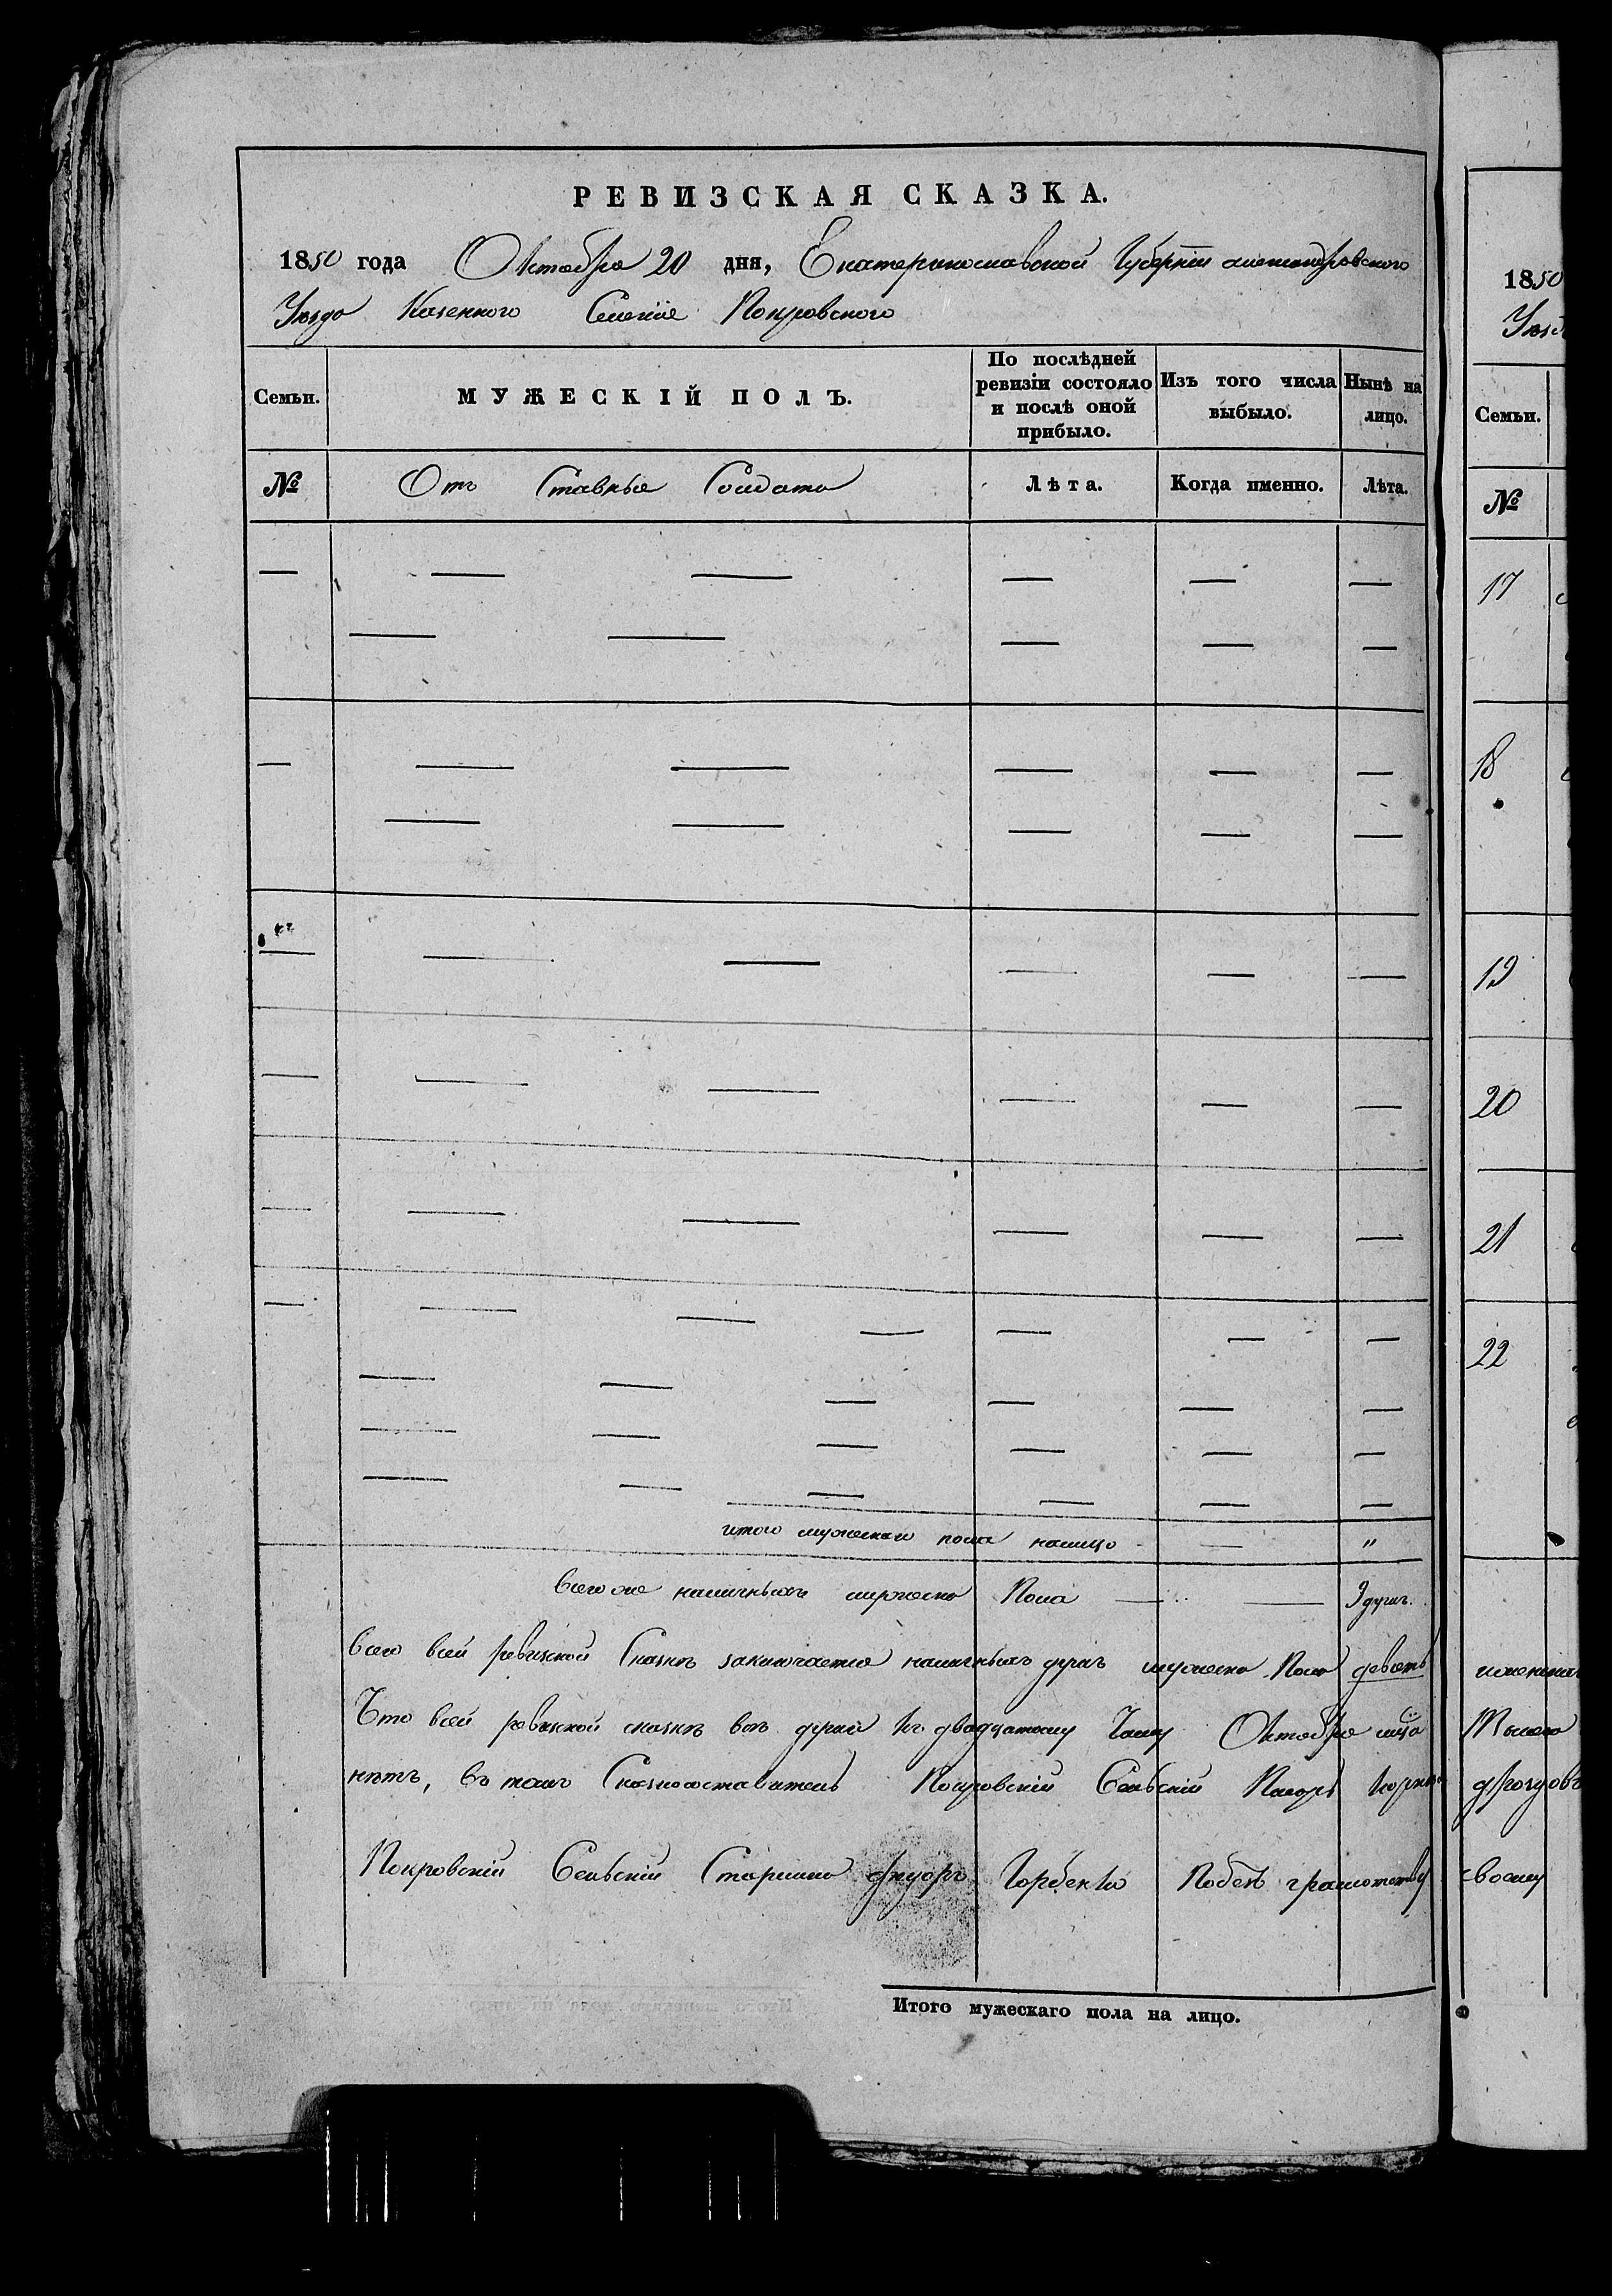 РЕВИЗСКАЯ СКАЗКА.
1850 года Октября 20 дня, Екатеринославской Губернiи александровского
Уезда Казенного Селенiе Покровского
Семьи.
МУЖЕСКIЙ ПОЛЪ.
По послѣдней ревизiи состояло и послѣ оной прибыло.
Изъ того числа выбыло.
Нынѣ на лицо.
№
Отъ Ставные Солдаты
Лѣта.
Когда именно.
Лѣта.
итого мужескаго пола налицо — "
Всего же наличныхъ мужеска Пола — 9 душъ.
Всего всей ревизкой Сказкѣ заключается наличныхъ душъ мужеска Пола девять
Что всей ревизкой сказкѣ всѣ души къ двадцатому Октября
нѣтъ, въ томъ Сказкосоставитель Покровскiй Сельскiй Писарь
Покровскiй Сельскiй Старшина Горбенко грамотству
Итого мужескаго пола на лицо.
1850
Семьи.
№
17
18
19
20
21
22
своему